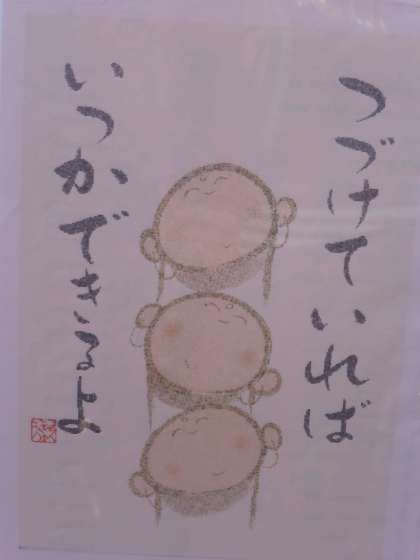 つづけていれば
いつかできるよ